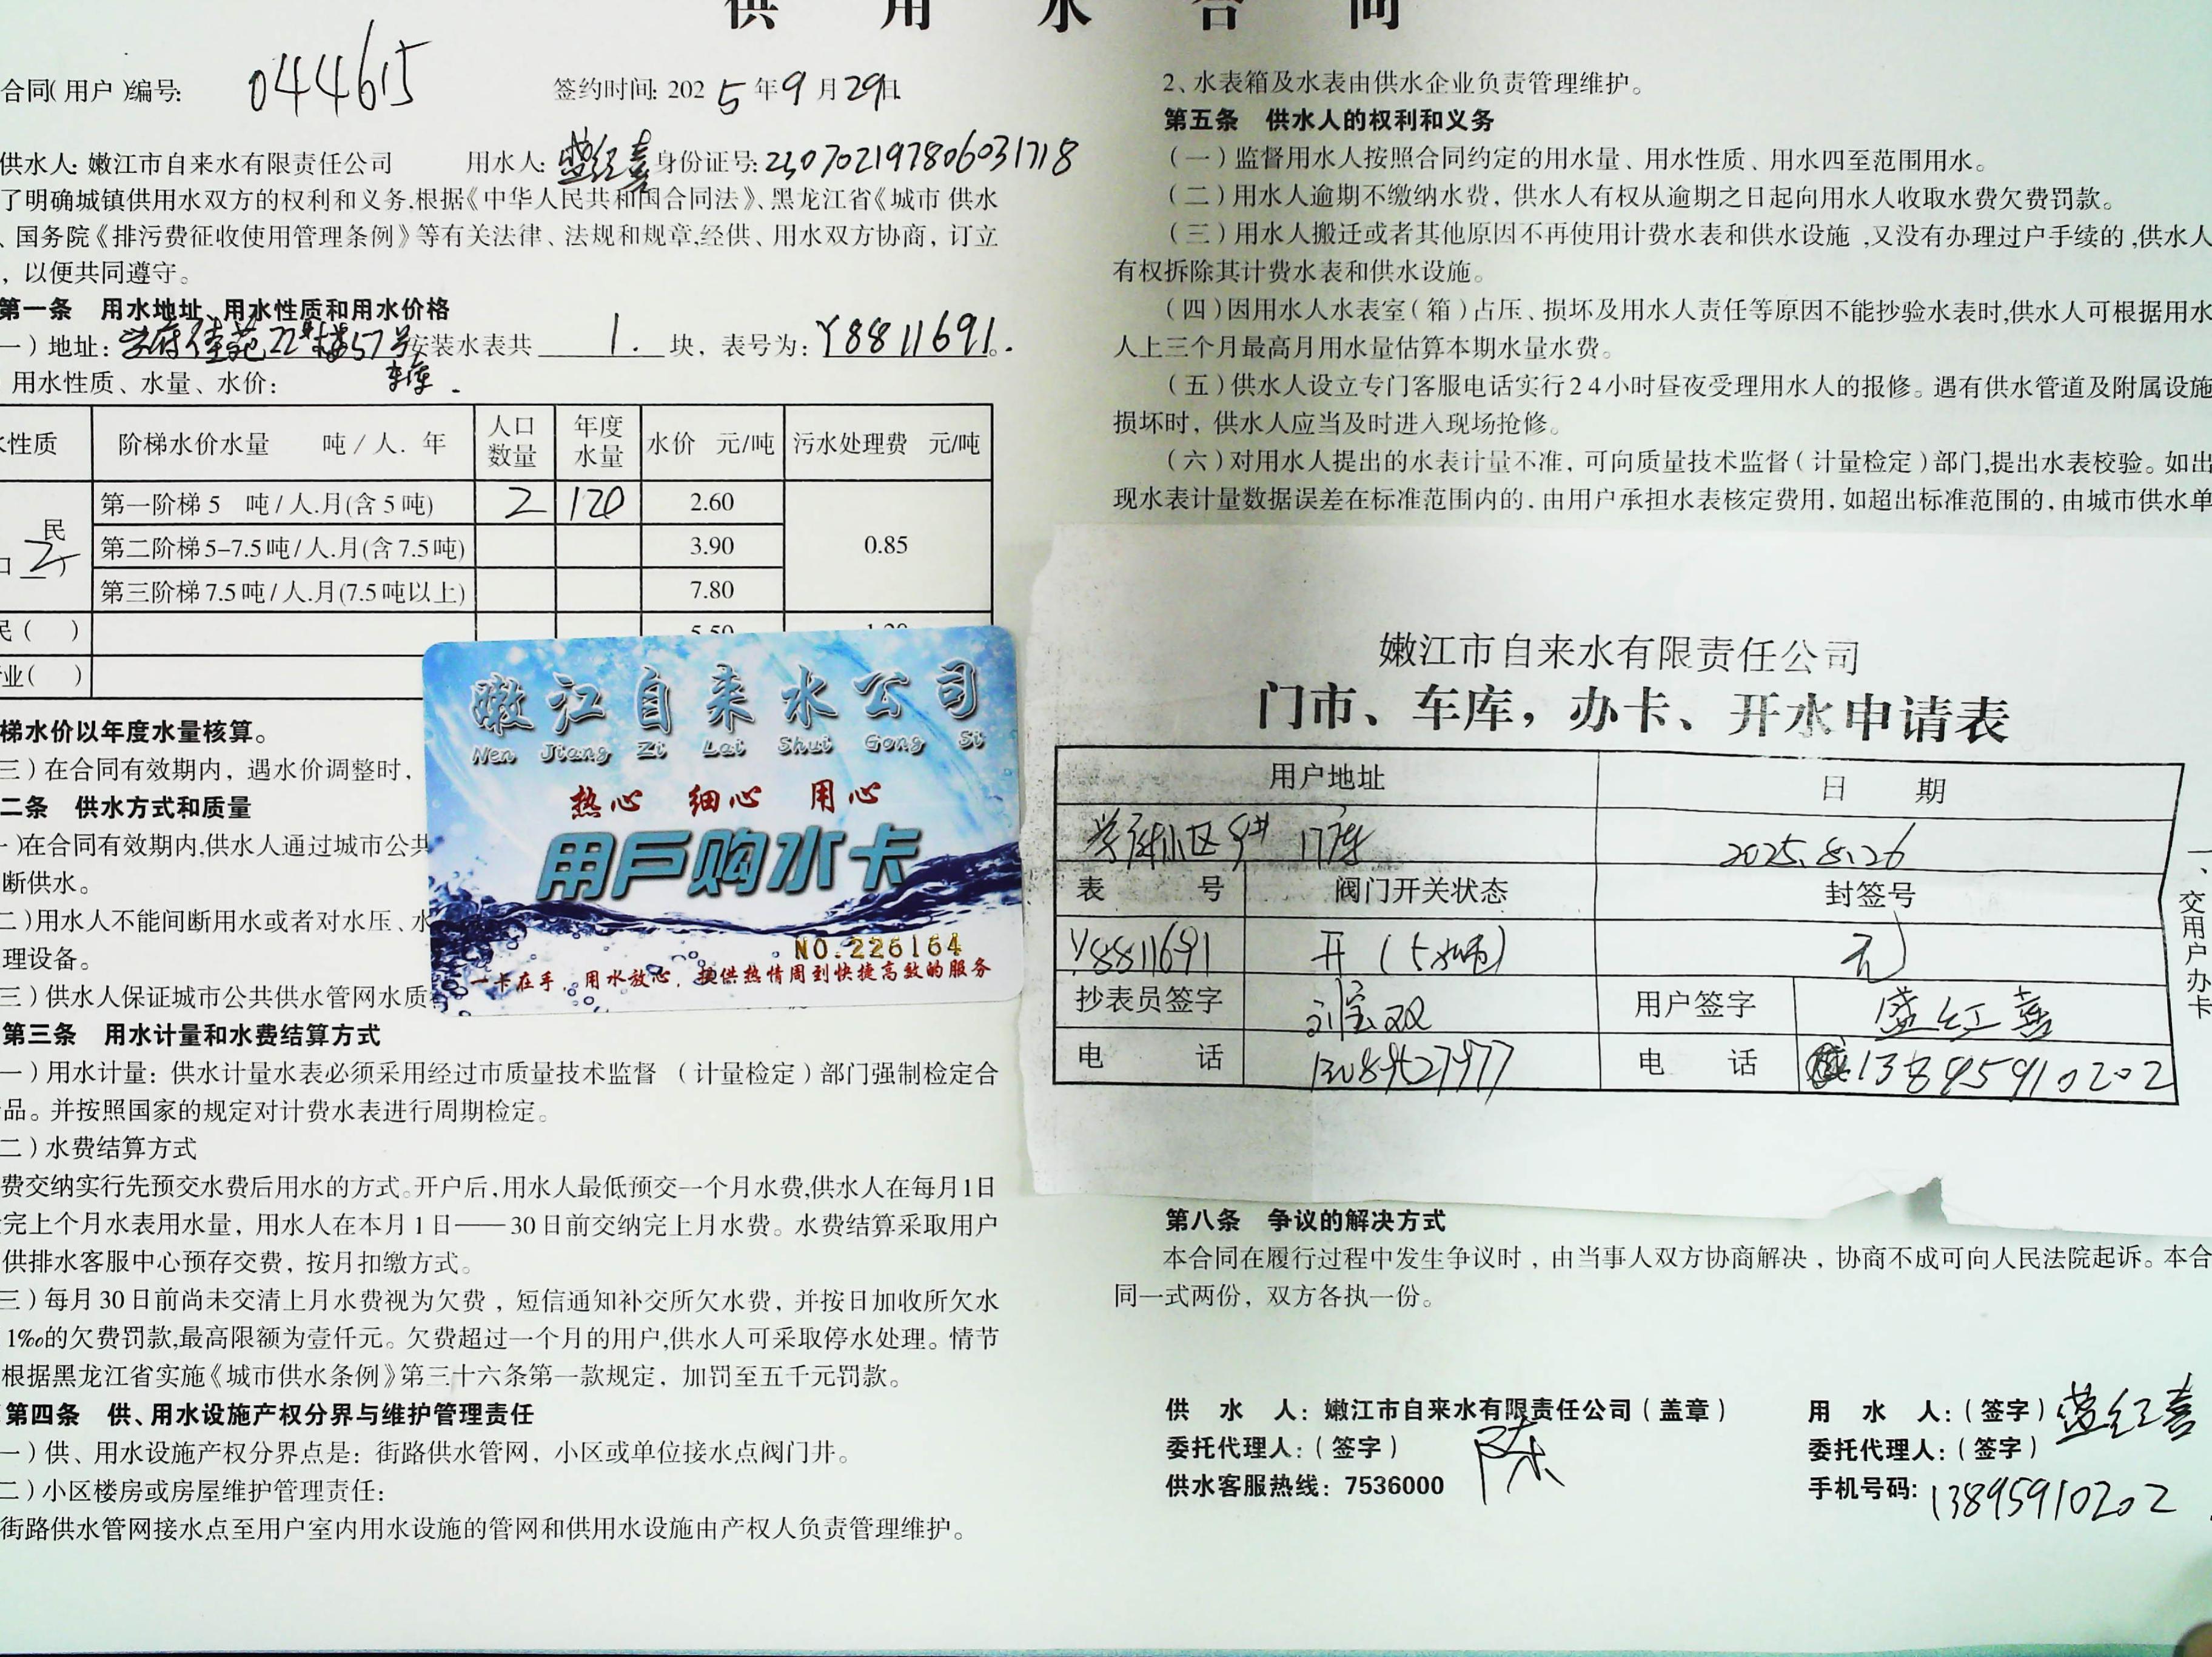 供 用 水 合 同
合同(用户)编号: 044615
签约时间: 2025年9月29日
供水人: 嫩江市自来水有限责任公司 用水人: 盛红喜 身份证号: 230702197806031718
了明确城镇供用水双方的权利和义务,根据《中华人民共和国合同法》、黑龙江省《城市 供水
、国务院《排污费征收使用管理条例》等有关法律、法规和规章,经供、用水双方协商，订立
，以便共同遵守。
第一条 用水地址、用水性质和用水价格
一）地址：学府佳苑22#楼57号车库 安装水表共 1. 块，表号为：Y8811691.
用水性质、水量、水价：
性质 阶梯水价水量 吨/人.年 人口数量 年度水量 水价 元/吨 污水处理费 元/吨
民 第一阶梯 5 吨/人.月(含 5 吨) 2 120 2.60 0.85
口 2 第二阶梯 5-7.5 吨/人.月(含 7.5 吨) 3.90
第三阶梯 7.5 吨/人.月(7.5 吨以上) 7.80
民（ ） 5.50 1.20
业（ ）
梯水价以年度水量核算。
三）在合同有效期内，遇水价调整时，
二条 供水方式和质量
)在合同有效期内,供水人通过城市公共
断供水。
二）用水人不能间断用水或者对水压、水
理设备。
三）供水人保证城市公共供水管网水质
第三条 用水计量和水费结算方式
一）用水计量：供水计量水表必须采用经过市质量技术监督（计量检定）部门强制检定合
品。并按照国家的规定对计费水表进行周期检定。
二）水费结算方式
费交纳实行先预交水费后用水的方式。开户后,用水人最低预交一个月水费,供水人在每月1日
完上个月水表用水量，用水人在本月 1 日——30 日前交纳完上月水费。水费结算采取用户
供排水客服中心预存交费，按月扣缴方式。
三）每月 30 日前尚未交清上月水费视为欠费，短信通知补交所欠水费，并按日加收所欠水
1‰的欠费罚款,最高限额为壹仟元。欠费超过一个月的用户,供水人可采取停水处理。情节
根据黑龙江省实施《城市供水条例》第三十六条第一款规定，加罚至五千元罚款。
第四条 供、用水设施产权分界与维护管理责任
一）供、用水设施产权分界点是：街路供水管网，小区或单位接水点阀门井。
二）小区楼房或房屋维护管理责任：
街路供水管网接水点至用户室内用水设施的管网和供用水设施由产权人负责管理维护。
嫩江自来水公司
Nen Jiang Zi Lai Shui Gong Si
热心 细心 用心
用户购水卡
NO.226164
一卡在手，用水放心，提供热情周到快捷高效的服务
2、水表箱及水表由供水企业负责管理维护。
第五条 供水人的权利和义务
（一）监督用水人按照合同约定的用水量、用水性质、用水四至范围用水。
（二）用水人逾期不缴纳水费，供水人有权从逾期之日起向用水人收取水费欠费罚款。
（三）用水人搬迁或者其他原因不再使用计费水表和供水设施,又没有办理过户手续的,供水人
有权拆除其计费水表和供水设施。
（四）因用水人水表室（箱）占压、损坏及用水人责任等原因不能抄验水表时,供水人可根据用水
人上三个月最高月用水量估算本期水量水费。
（五）供水人设立专门客服电话实行24小时昼夜受理用水人的报修。遇有供水管道及附属设施
损坏时，供水人应当及时进入现场抢修。
（六）对用水人提出的水表计量不准，可向质量技术监督（计量检定）部门,提出水表校验。如出
现水表计量数据误差在标准范围内的，由用户承担水表核定费用，如超出标准范围的，由城市供水单
嫩江市自来水有限责任公司
门市、车库，办卡、开水申请表
用户地址 日 期
学府小区 17库 2025.8.26
表 号 阀门开关状态 封签号
Y8811691 开 无
抄表员签字 刘宝双 用户签字 盛红喜
电 话 13089527977 电 话 13895910202
一、交用户办卡
第八条 争议的解决方式
本合同在履行过程中发生争议时，由当事人双方协商解决，协商不成可向人民法院起诉。本合
同一式两份，双方各执一份。
供 水 人：嫩江市自来水有限责任公司（盖章）
委托代理人：（签字） 陈
供水客服热线：7536000
用 水 人：（签字）盛红喜
委托代理人：（签字）
手机号码：13895910202